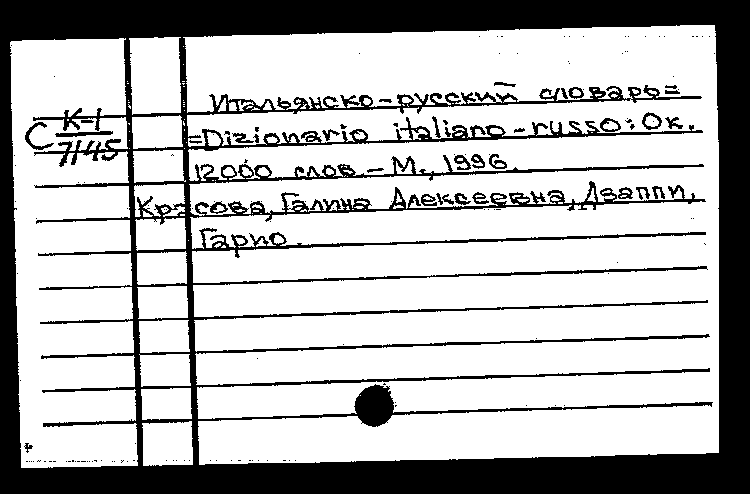 Итальянско-русский словарь=
С К-1/7145
=Dizionario italiano-russo: Ок.
12000 слов - М., 1996.
Красова, Галина Алексеевна, Дзаппи,
Гарио.